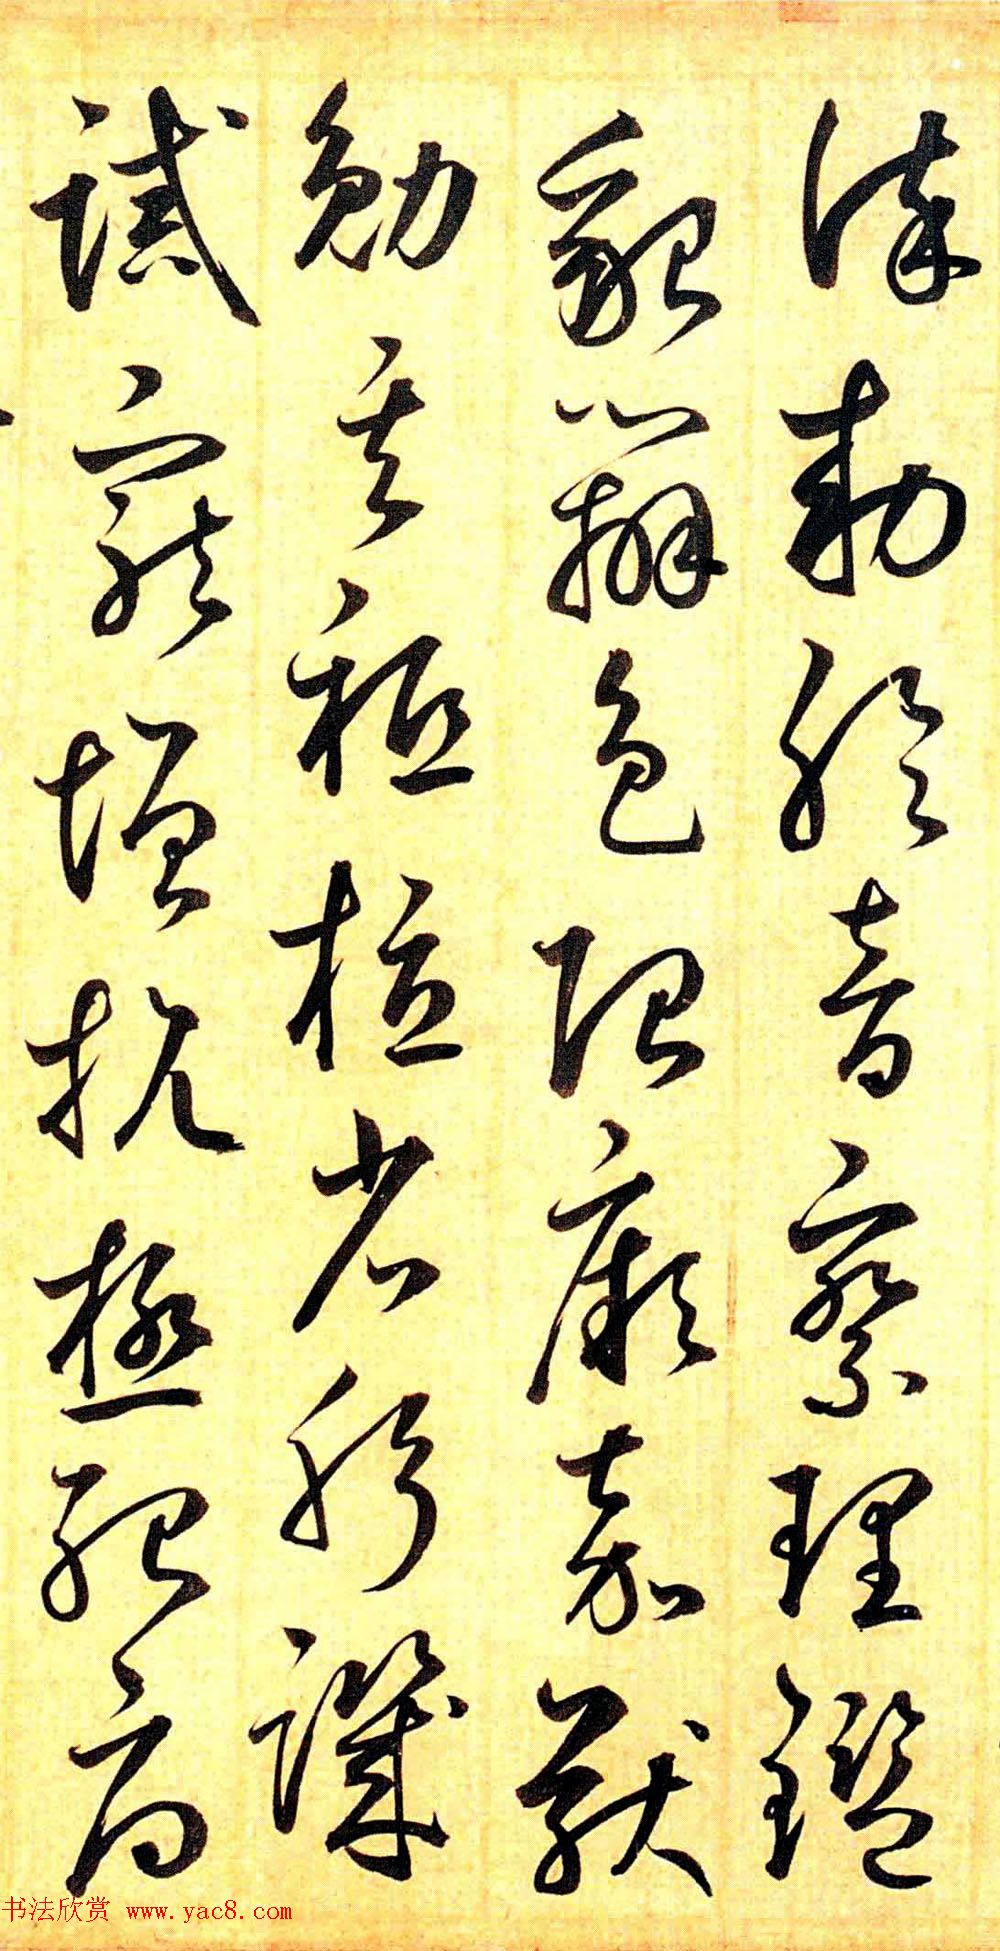 謹勅聆音察理鑑
貌辨色貽厥嘉猷
勉其祗植省躬譏
誡寵增抗極殆辱
书法欣赏 www.yac8.com